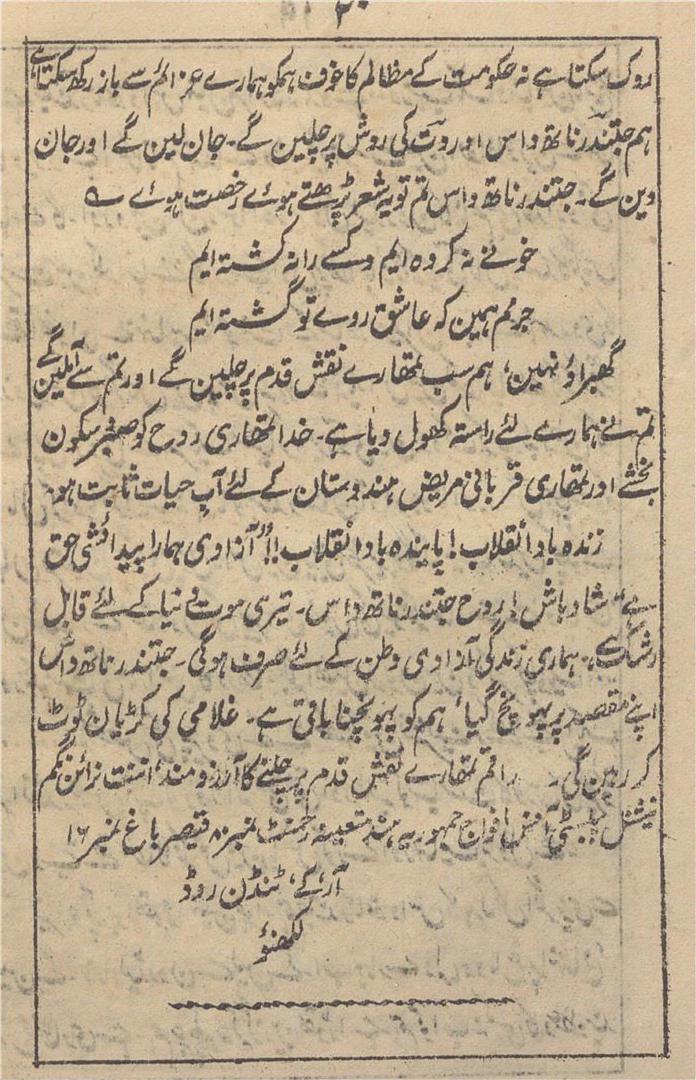 ۲۰
روک سکتا ہے نہ حکومت کے مظالم کا خوف ہمکو ہمارے عزائم سے باز رکھ سکتا ہے
ہم جتندر ناتھ داس اور وت کی روش پر چلین گے۔ جان لین گے اور جان
دین گے۔ جتندر ناتھ داس تم تو یہ شعر پڑھتے ہوئے رخصت ہوئے ؎
خونے نہ کردہ ایم و کسے را نہ کشتہ ایم
جرمم ہمین کہ عاشق روے تو گشتہ ایم
گھبراؤ نہین، ہم سب تمھارے نقش قدم پر چلین گے اور تم سے آملین گے
تم نے ہمارے لئے راستہ کھول دیا ہے۔ خدا تمھاری روح کو سکون
بخشے اور تمھاری قربانی مریض ہندوستان کے لئے آب حیات ثابت ہو۔
زندہ باد انقلاب! پایندہ باد انقلاب!! "آزادی ہمارا پیدائشی حق
ہے" شاد باش! روح جتندر ناتھ داس۔ تیری موت دنیا کے لئے قابل
رشک ہے، ہماری زندگی آزادی وطن کے لئے صرف ہوگی۔ جتندر ناتھ داس
اپنے مقصد پر پہونچ گیا، ہم کو پہونچنا باقی ہے۔ غلامی کی کڑیان ٹوٹ
کر رہین گی۔ راقم تمھارے نقش قدم پر چلنے کا آرزومند، اننت نرائن نگم
نیشنل پبلسٹی آفس افواج جمہوریہ ہند متعینہ رجمنٹ نمبر ۸ قیصر باغ نمبر ۱۶
آر، کے، ٹنڈن روڈ
لکھنؤ